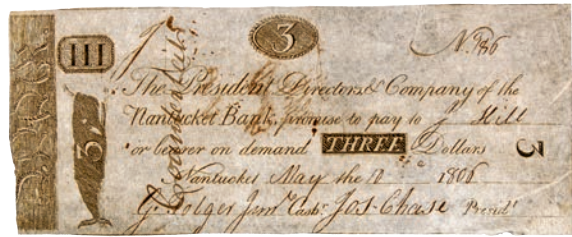 III
3
No. 86
The President Directors & Company of the
Nantucket Bank, promise to pay to J Hill
or bearer on demand THREE Dollars
3
3
Nantucket May the 12 1806
G. Folger Junr. Cashr. Jos. Chase Presidt
Counterfeit